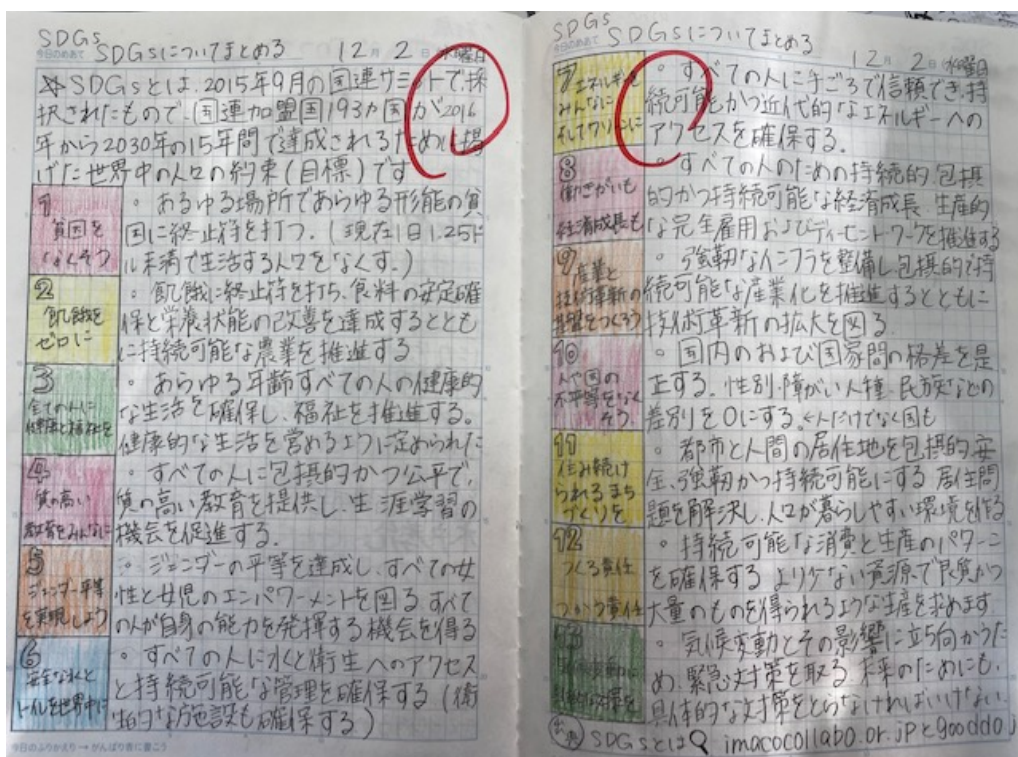 SDGs
今日のめあて SDGsについてまとめる 12月 2日 水曜日
☆SDGsとは、2015年9月の国連サミットで採
択されたもので、国連加盟国193カ国が2016
年から2030年の15年間で達成されるために掲
げた世界中の人々の約束(目標)です
1 貧国をなくそう
。あるゆる場所であらゆる形能の貧
国に終止符を打つ。(現在1日1.25ド
ル未満で生活する人々をなくす。)
2 飢餓をゼロに
。飢餓に終止符を打ち、食料の安定確
保と栄養状能の改善を達成するととも
に持続可能な農業を推進する
3 全ての人に健康と福祉を
。あらゆる年齢すべての人の健康的
な生活を確保し、福祉を推進する。
健康的な生活を営めるように定められた
4 質の高い教育をみんなに
。すべての人に包摂的かつ公平で、
質の高い教育を提供し、生涯学習の
機会を促進する.
5 ジェンダー平等を実現しよう
。ジェンダーの平等を達成し、すべての女
性と女児のエンパワーメントを図る すべて
の人が自身の能力を発揮する機会を得る
6 安全な水とトイレを世界中に
。すべての人に水と衛生へのアクセス
と持続可能な管理を確保する(衛
的な施設も確保する)
今日のふりかえり→がんばり表に書こう
SDGs
今日のめあて SDGsについてまとめる 12月 2日 水曜日
7 エネルギーをみんなに そしてクリーンに
。すべての人に手ごろで信頼でき、持
続可能かつ近代的なエネルギーへの
アクセスを確保する.
8 働きがいも経済成長も
。すべての人のための持続的、包摂
的かつ持続可能な経済成長、生産的
な完全雇用およびディーセントワークを推進する
9 産業と技術革新の基盤をつくろう
。強靭なインフラを整備し、包摂的で持
続可能な産業化を推進するとともに
技術革新の拡大を図る.
10 人や国の不平等をなくそう.
。国内のおよび国家間の格差を是
正する. 性別、障がい、人種、民族などの
差別を0にする.←人だけでなく国も
11 住み続けられるまちづくりを
。都市と人間の居住地を包摂的、安
全、強靭かつ持続可能にする 居住問
題を解決し、人々が暮らしやすい環境を作る
12 つくる責任 つかう責任
。持続可能な消費と生産のパターン
を確保する より少ない資源で良質かつ
大量のものを得られるような生産を求めます.
13
。気候変動とその影響に立ち向かうた
め、緊急対策を取る 未来のためにも、
具体的な対策をとらなければいけない.
出典 SDGsとは imacocollabo.or.jpとgooddo j